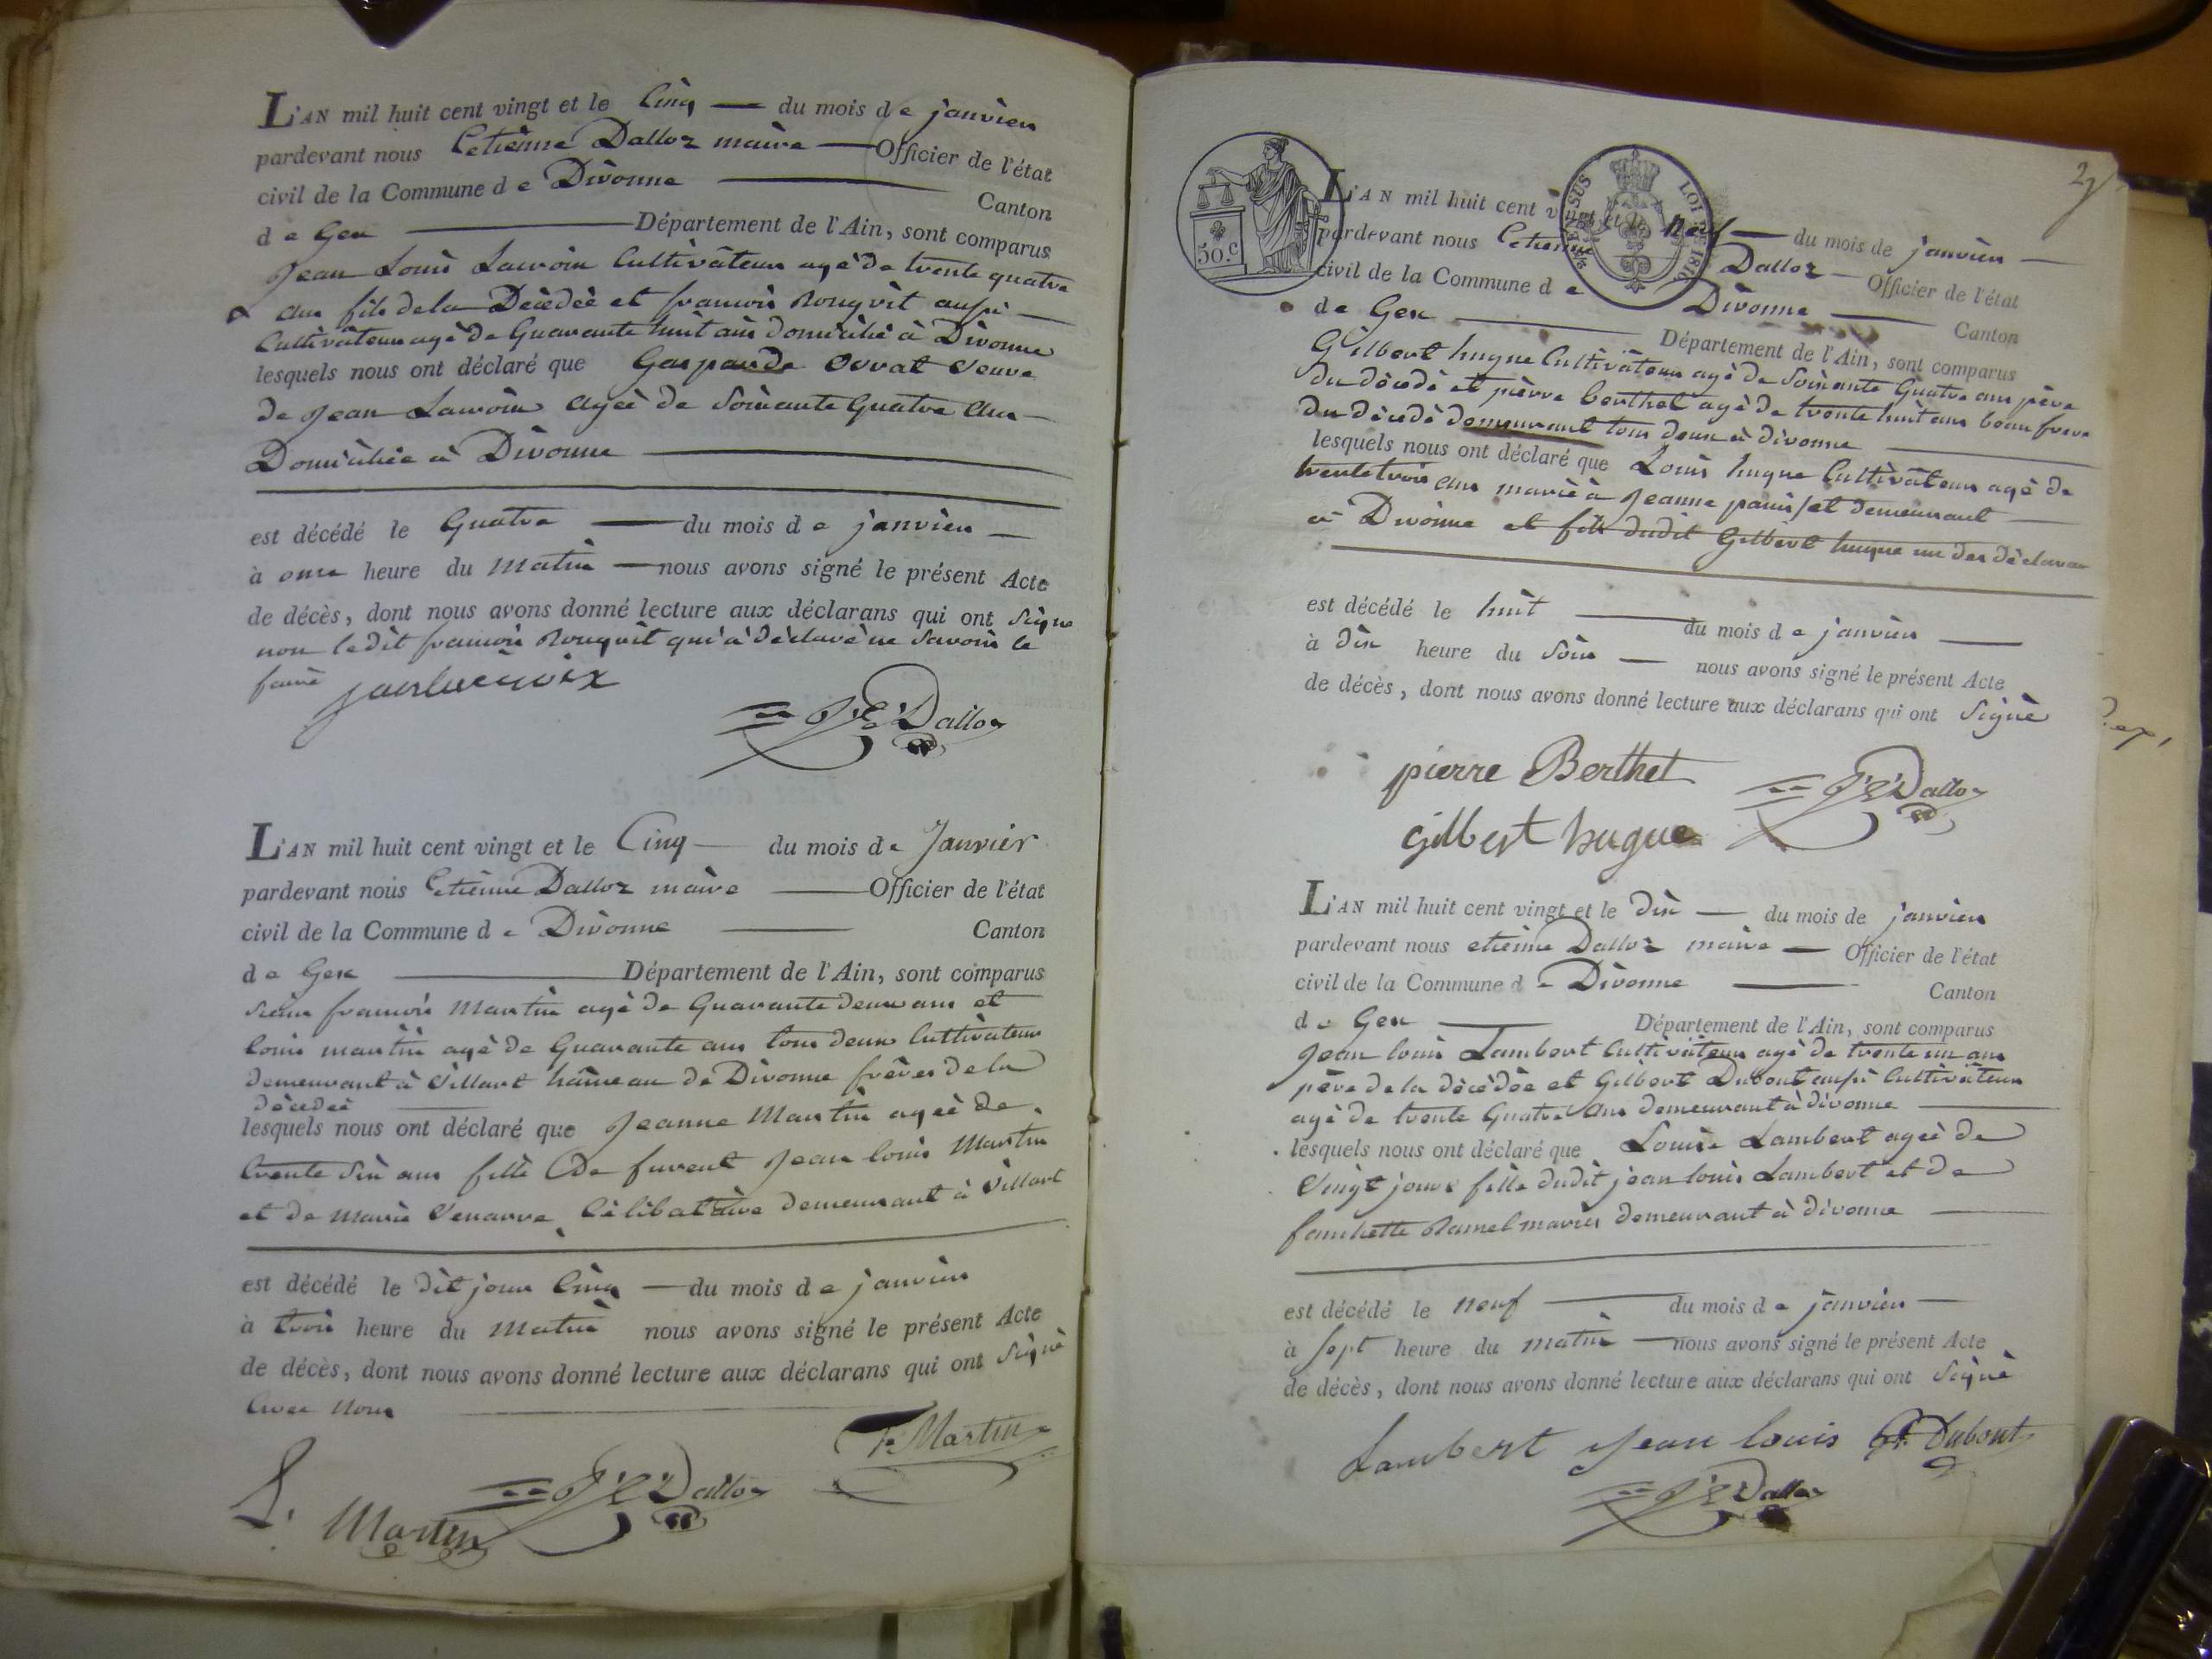 L'AN mil huit cent vingt et le Cinq du mois de janvier
pardevant nous Etienne Dalloz maire Officier de l'état
civil de la Commune de Divonne Canton
de Gex Département de l'Ain, sont comparus
Jean Louis Lacroix Cultivateur agé de trente quatre
ans fils de la Décedée et francois Rouguit aussi
Cultivateur agé de Quarante huit ans domicilié à Divonne
lesquels nous ont déclaré que Gasparde Veuve
de Jean Lacroix agée de Soixante Quatre ans
Domiciliée à Divonne
est décédé le Quatre du mois de janvier
à onze heure du matin nous avons signé le présent Acte
de décès, dont nous avons donné lecture aux déclarans qui ont Signé
non ledit francois Rouguit qui à déclaré ne Savoir le
faire
J E Dalloz
L'AN mil huit cent vingt et le Cinq du mois de Janvier
pardevant nous Etienne Dalloz maire Officier de l'état
civil de la Commune de Divonne Canton
de Gex Département de l'Ain, sont comparus
Sieur francois Martin agé de Quarante deux ans et
Louis martin agé de Quarante ans tous deux Cultivateur
demeurant à Villart hâmeau de Divonne frères de la
décedée
lesquels nous ont déclaré que Jeanne Martin ageé de
trente Six ans fille de furent Jean louis Martin
et de Marie Célibatâire demeurant à Villart
est décédé le dit jour Cinq du mois de janvier
à trois heure du matin nous avons signé le présent Acte
de décès, dont nous avons donné lecture aux déclarans qui ont Signé
avec nous
f. Martin
J E Dalloz
L. Martin
2
50 C.
LOI DE 1816
L'AN mil huit cent vingt et le neuf du mois de janvier
pardevant nous Etienne Dalloz Officier de l'état
civil de la Commune de Divonne Canton
de Gex Département de l'Ain, sont comparus
Gilbert hugue Cultivateur agé de Soixante Quatre ans père
du décedé et pierre berthet agé de trente huit ans beau frere
du décedé demeurant tous deux à divonne
lesquels nous ont déclaré que Louis hugue Cultivateur agé de
trente trois ans marié à Jeanne et demeurant
à Divonne et fils dudit Gilbert hugue un des déclarans
est décédé le huit du mois de janvier
à dix heure du Soir nous avons signé le présent Acte
de décès, dont nous avons donné lecture aux déclarans qui ont Signé
pierre Berthet
J E Dalloz
gilbert hugue
L'AN mil huit cent vingt et le dix du mois de janvier
pardevant nous etienne Dalloz maire Officier de l'état
civil de la Commune de Divonne Canton
de Gex Département de l'Ain, sont comparus
Jean louis Lambert Cultivateur agé de trente un ans
père de la décédée et Gilbert Dubout aussi Cultivateur
agé de trente Quatre ans demeurant à divonne
lesquels nous ont déclaré que Louise Lambert ageé de
Vingt jours fille dudit jean louis Lambert et de
fanchette Ramel mariés demeurant à divonne
est décédé le neuf du mois de janvier
à sept heure du matin nous avons signé le présent Acte
de décès, dont nous avons donné lecture aux déclarans qui ont Signé
Lambert Jean louis G. Dubout
J E Dalloz